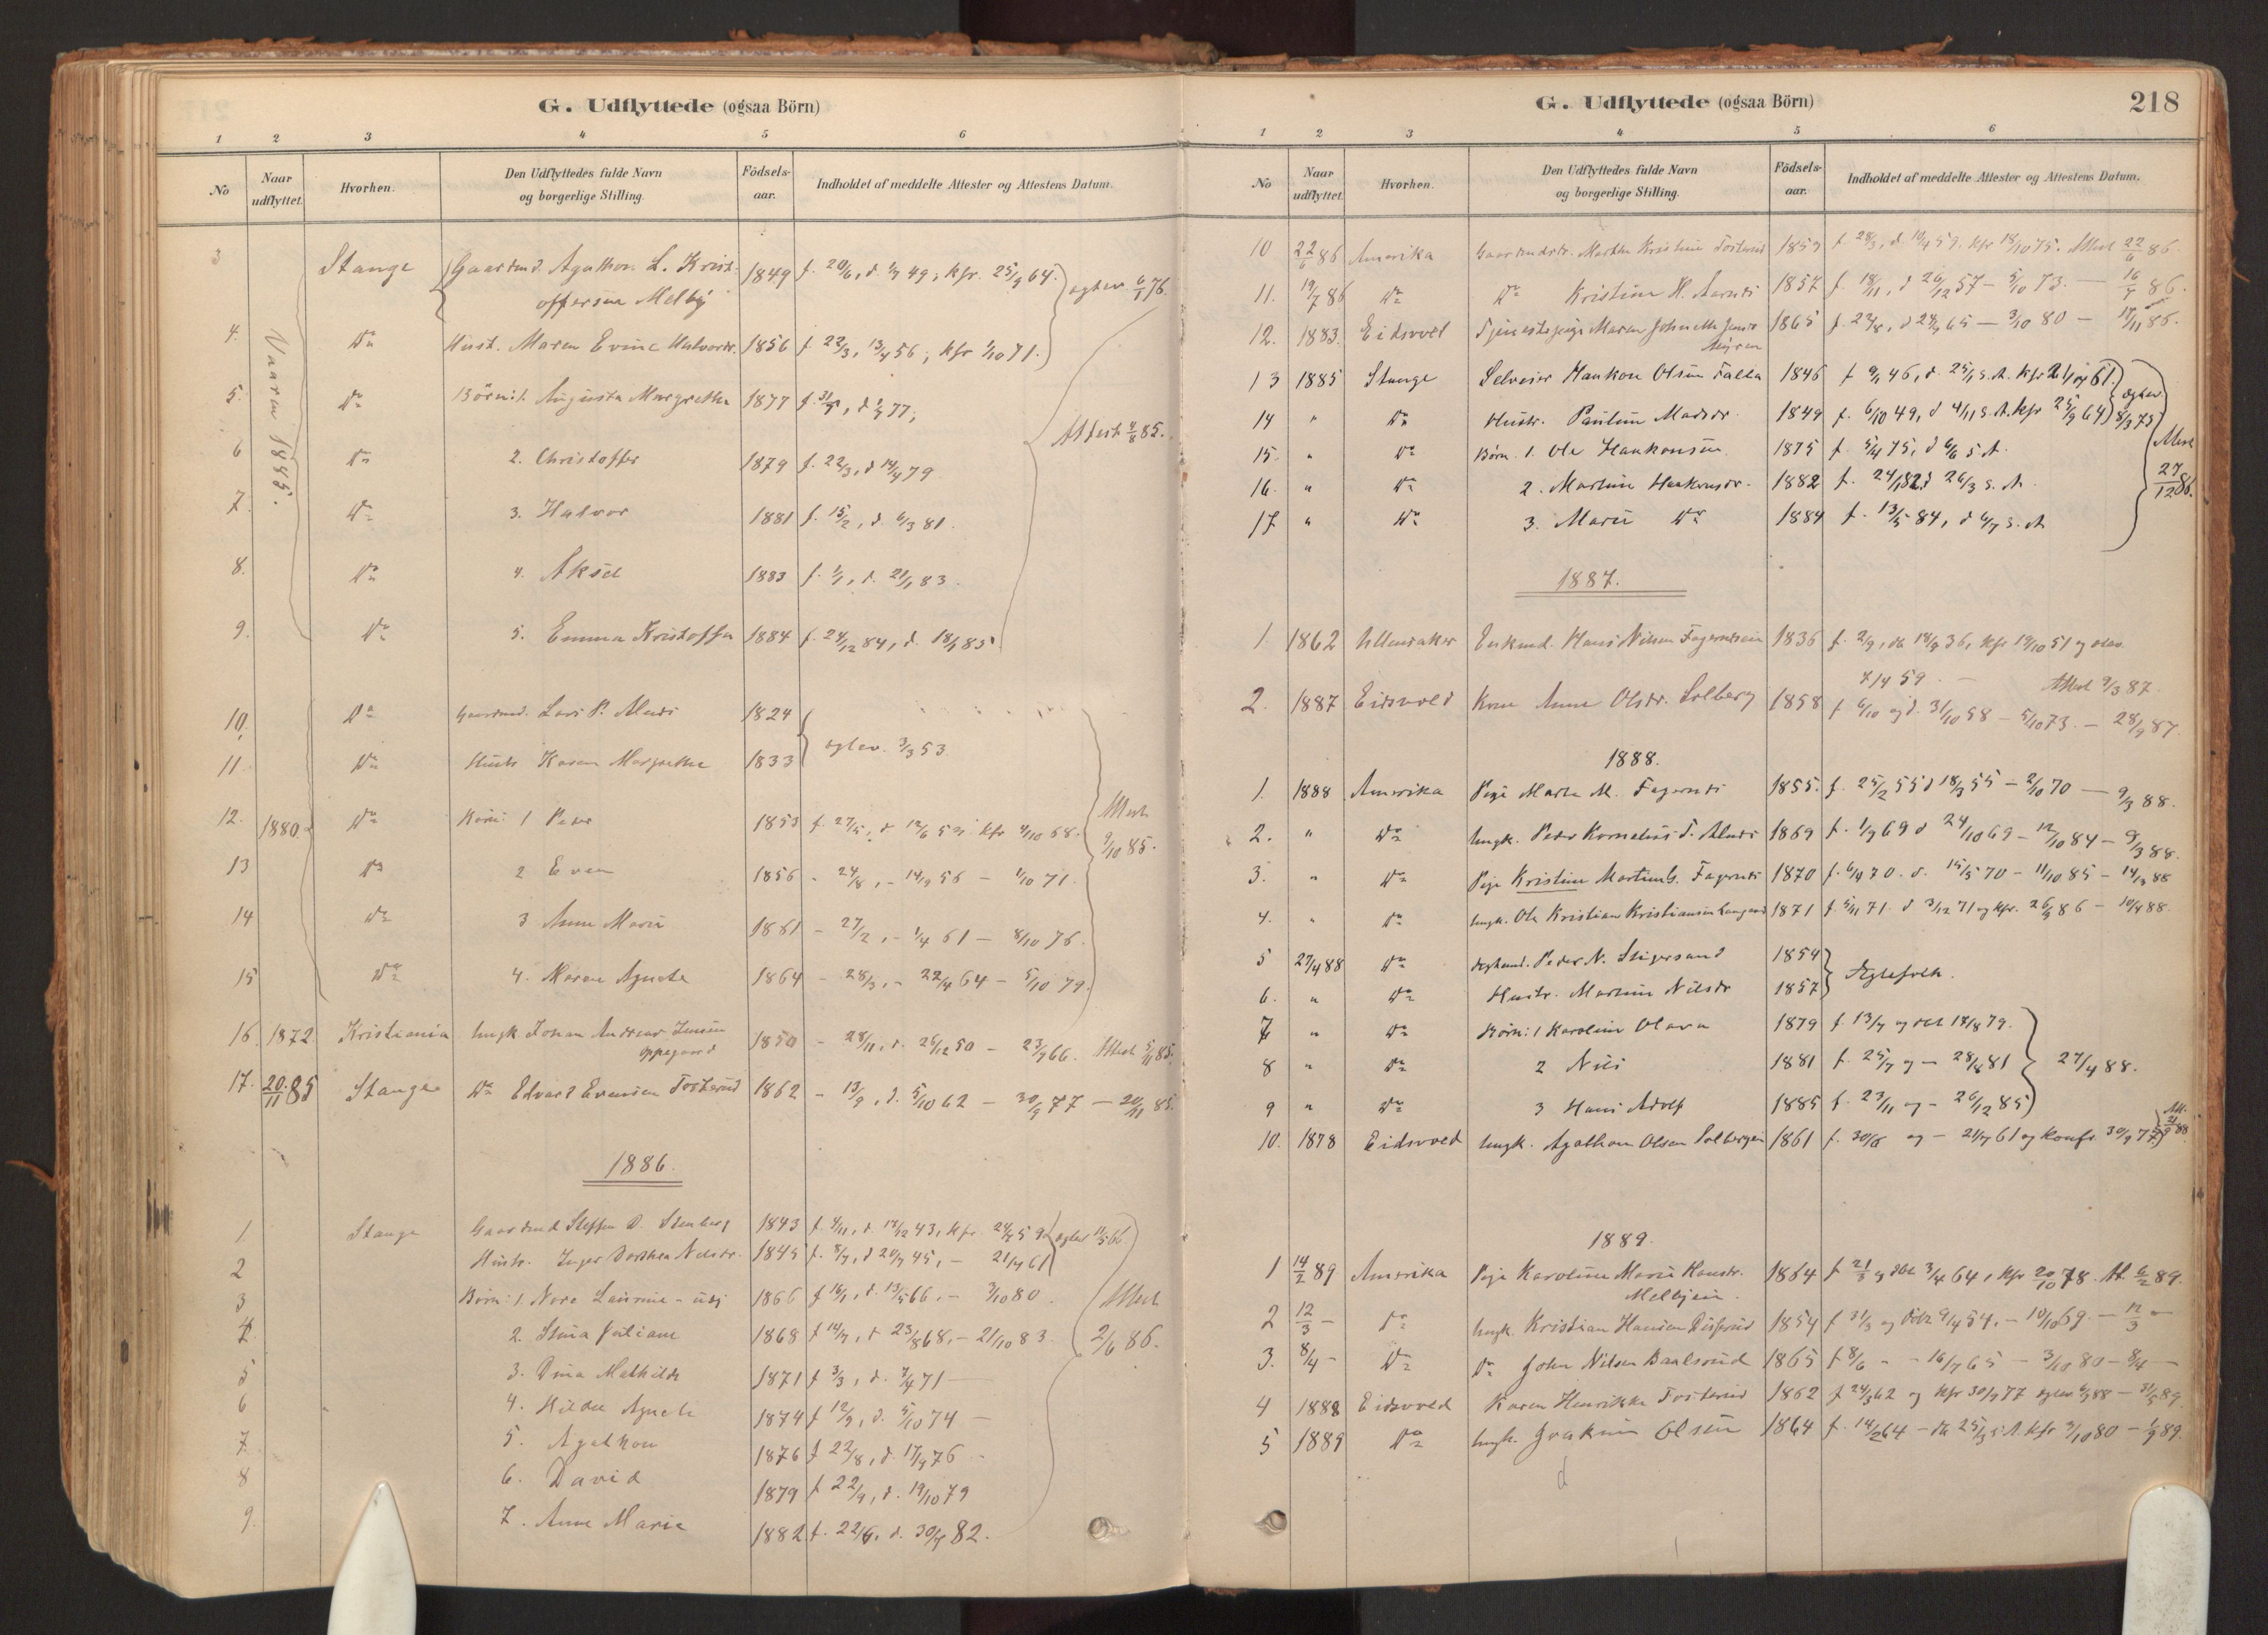 G. Udflyttede (ogsaa Börn)
1 2 3 4 5 6
No Naar udflyttet. Hvorhen. Den Udflyttedes fulde Navn og borgerlige Stilling. Födsels-aar. Indholdet af meddelte Attester og Attestens Datum.
Vaaren 1885.
3 Stange Gaardmd. Agathon L. Krist- 1849 f. 20/6, d. 49; kfr. 25/9 64. egtev. 76.
offersen Melby
4. Do Hust. Maren Evine Halvorsdr. 1856 f. 22/3, 13/4 56; kfr 1/10 71.
5. Do Börn: 1. Augusta Margrethe 1877 f. 77;
Attest 85.
6 Do 2. Christoffer 1879 f. 22/3, d 14/4 79
7. Do 3. Halvor 1881 f. 15/2, d. 6/3 81.
8. Do 4. Aksel 1883 f. 1/1, d. 21/1 83.
9. Do 5. Emma Kristoffa 1884 f. 24/12 84, d. 18/1 85
10. Do Gaardmd. Lars P. 1824
egtev. 3/3 53.
11 Do Hustr Karen Margrethe 1833
12. 1880 Do Börn: 1 Peder 1853 f. 27/5, d. 12/6 53 kfr 4/10 68. Attest
9/10 85.
13 Do 2 Even 1856 - 24/8, - 14/9 56 - 1/10 71.
14 Do 3 Anne Marie 1861 - 27/2, - 1/4 61 - 8/10 76.
15 Do 4. Karen Agnete 1864 - 28/3, - 22/4 64 - 5/10 79.
16. 1872. Kristiania Ungk Johan Andreas Jensen 1850 - 28/11, d. 26/12 50 - 23/9 66. Attest 5/11 85.
Oppegaard
17. 20/11 85 Stange Do Edvard Evensen Fosterud 1862 - 13/9, d. 5/10 62 - 30/9 77 - 20/11 85.
1886.
1 Stange Gaardmd Steffen D. Stenberg 1843 f. 4/11, d. 17/12 43, kfr. 59 egtev 66
2 Hustr. Inger Dorthea Nilsdr. 1845 f. 8/7, d 20/7 45, - 61
3 Börn: 1. Nora Laurine 1866 f 16/1, d. 13/5 66, - 3/10 80. Attest
4 2. Stina Juliane 1868 f 14/7, d 23/8 68, - 21/10 83. 2/6 86.
5 3. Dina Mathilde 1871 f 3/3, d. 7/4 71 -
6 4. Hilda Agnete 1874 f 12/9, d. 5/10 74 -
7. 5. Agathon 1876 f 22/8, d. 17/9 76 -
8 6. David 1879 f 22/9, d. 19/10 79
9. 7. Anne Marie 1882 f. 22/6, d. 30/7 82.
G. Udflyttede (ogsaa Börn)
218
1 2 3 4 5 6
No Naar udflyttet Hvorhen. Den Udflyttedes fulde Navn og borgerlige Stilling. Födsels-aar. Indholdet af meddelte Attester og Attestens Datum.
10 22/6 86 Amerika Gaardmdsdr. Marthe Kristine Fosterud 1859 f 28/3, d. 10/4 59. kfr 18/10 75. Attest 22/6 86.
11. 19/7 86 Do Do Kristine H. 1857 f 18/11, d 26/12 57 - 5/10 73. - 16/7 86.
12. 1883. Eidsvold Tjenestepige Maren Johnette 1865 f. 22/8, d 24/9 65 - 3/10 80 - 17/11 86.
Myren
13 1885 Stange Selveier Haakon Olsen Falla 1846 f 9/1 46, d. 25/1 s. A. kfr 61.
egtev. 8/3 75
14 " Do Hustr. Pauline Madsdr. 1849 f. 6/10 49, d 4/11 s. A. kfr 25/9 64
15. " Do Börn. 1. Ole Haakonsen 1875 f. 5/4 75, d 6/6 s A. Attest
27/12 86.
16. " Do 2. Martine Haakonsdr. 1882 f. 24/1 82 d 26/3 s. A.
17. " Do 3. Marie Do 1884 f. 13/5 84, d 6/7 s. A
1887.
1 1862 Ullensaker Enkmd. Hans Nilsen Fagerneseie 1836 f. 2/9, d. 18/9 36, kfr 19/10 51
59. - Attest 9/3 87
2. 1887 Eidsvold Kone Anne Olsdr. Solberg 1858 f 6/10 og d. 31/10 58 - 5/10 73. - 28/9 87.
1888.
1. 1888 Amerika Pige Marte M. Fagernæs 1855. f. 25/2 55 d 18/3 55 - 2/10 70 - 9/3 88.
2. " Do Ungk. Peder Kornelius 1869 f. 1/9 69 d 24/10 69 - 12/10 84 - 9/3 88.
3. " Do Pige Kristine Martinsd. Fagernæs 1870 f. 6/4 70. d. 15/5 70 - 11/10 85 - 14/3 88
4. " Do Ungk. Ole Kristian Kristiansen 1871 f. 5/11 71. d 3/12 71 og kfr. 26/9 86 - 10/4 88.
5 27/4 88 Do Peder N. Stigersand 1854
Egtefolk.
6. " Do Hustr. Martine Nilsdr 1857
7 " Do Börn: 1 Karoline Olava 1879 f 13/7 og döbt 17/8 79.
8 " Do 2 Nils 1881 f. 25/7 og - 28/8 81 27/4 88.
9 " Do 3 Hans Adolf 1885 f. 23/11 og - 26/12 85
10. 1878 Eidsvold Ungk. Agathon Olsen Solbergeie 1861 f. 30/6 og - 21/7 61 og konfr. 30/9 77. Att. 88
1889.
1 14/2 89 Amerika Pige Karoline Marie Hansdr. 1864 f 21/3 og döbt 3/4 64, kfr 20/10 78. At. 6/2 89.
Melbyeie.
2 12/3 - Do Ungk. Kristian Hansen 1854 f 31/3 og döbt 9/4 54. - 10/10 69. - 12/3 -
3. 8/4 - Do Do John Nilsen Baalsrud 1865 f 8/6 - - 16/7 65 - 3/10 80 - 8/4 -
4 1888 Eidsvold Karen Henrikke Fosterud 1862 f 24/3 62 og kfr 30/9 77 egtev 88 - 89
5 1889 Do Ungk. Joakim Olsen 1864 f. 14/2 64 - d. 25/3 s. A. kfr 3/10 80 - 1/9 89.